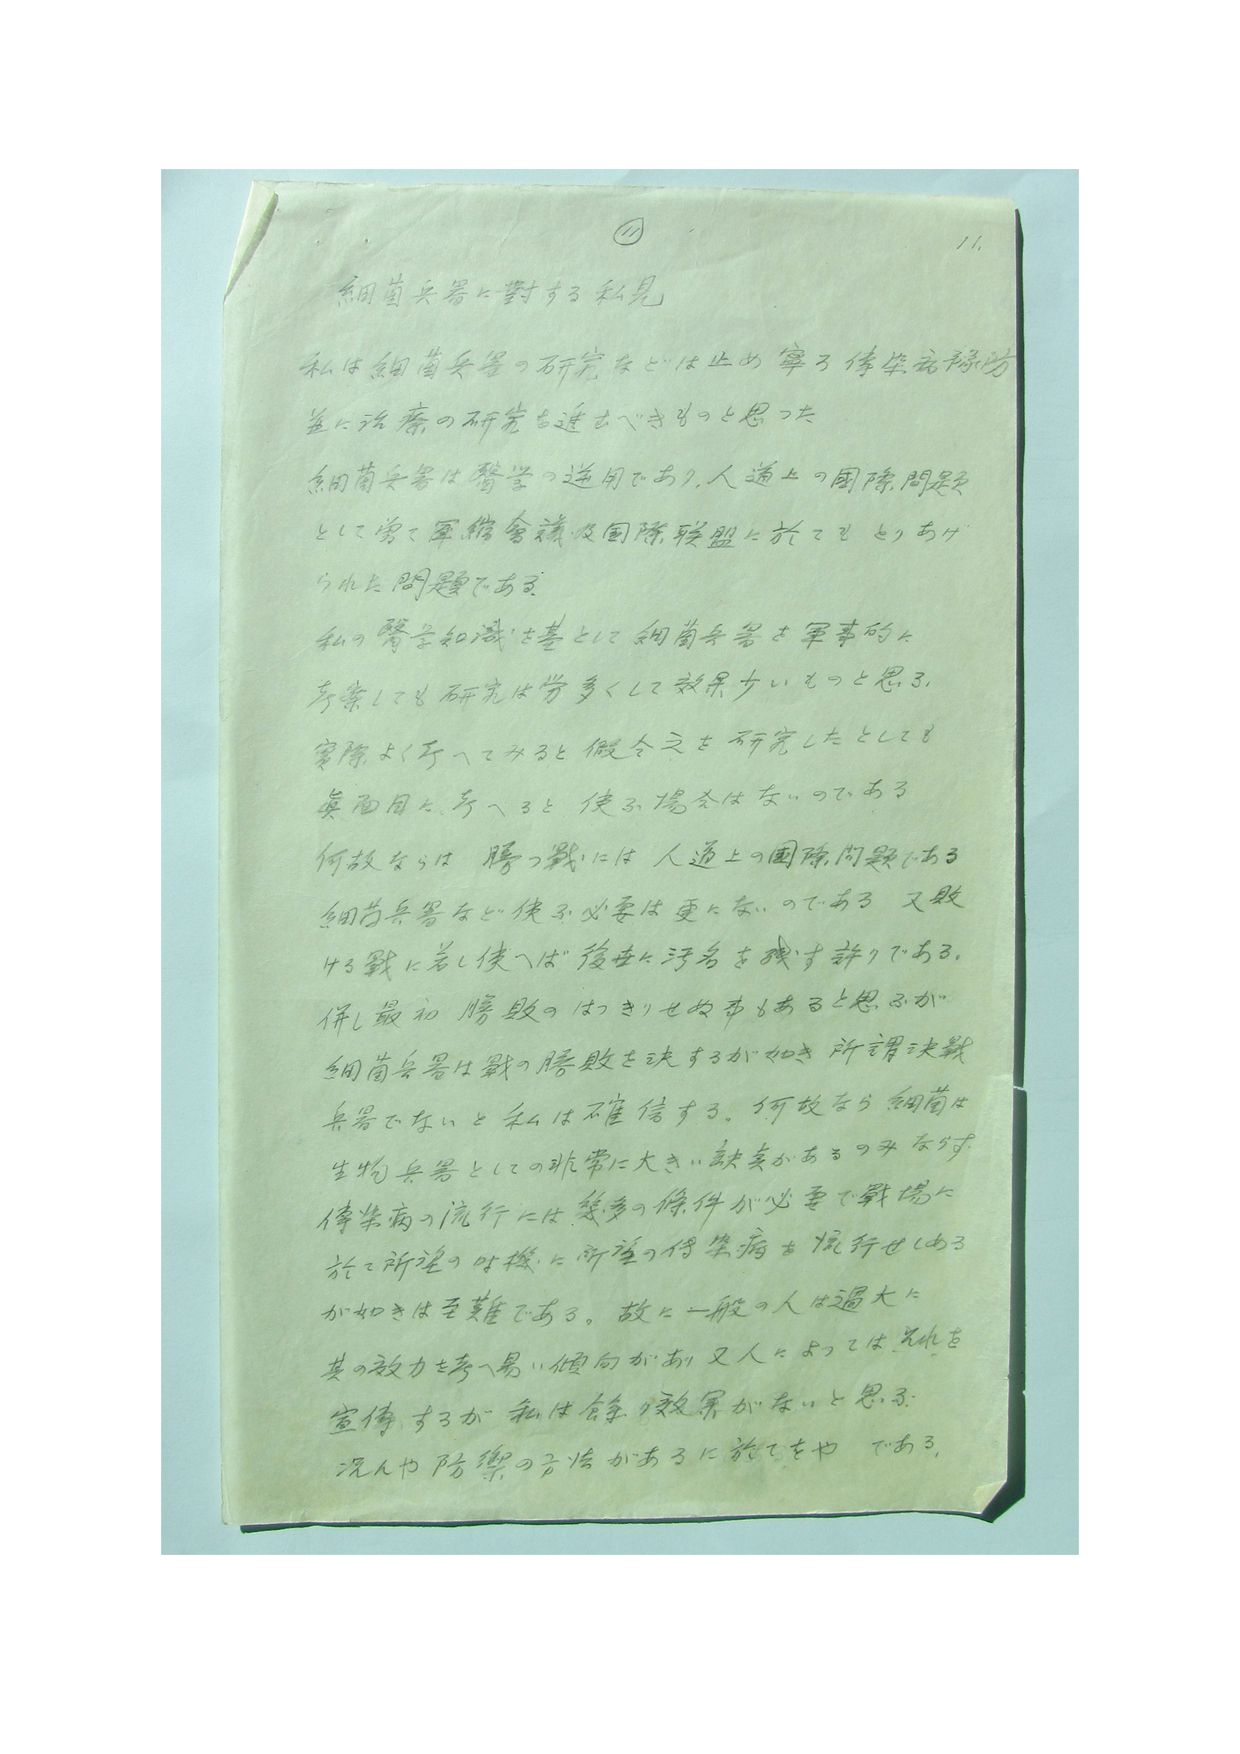 ⑪
11.
細菌兵器に對する私見
私は細菌兵器の研究などは止め寧ろ傳染病豫防
並に治療の研究を進むべきものと思つた
細菌兵器は醫学の逆用であり、人道上の國際問題
として嘗て軍縮會議及国際联盟に於てもとりあげ
られた問題である.
私の醫学知識を基として細菌兵器を軍事的に
考察しても研究は労多くして效果少いものと思ふ.
實際よく考へてみると假令之を研究したとしても
眞面目に考へると使ふ場合はないのである
何故ならは 勝つ戰には人道上の國際問題である
細菌兵器など使ふ必要は更にないのである 又敗
ける戰に若し使へば後世に汚名を残す許りである.
併し最初勝敗のはつきりせぬ事もあると思ふが
細菌兵器は戰の勝敗を決するが如き所謂決戰
兵器でないと私は確信する。何故なら細菌は
生物兵器としての非常に大きい缺点があるのみならず
傳染病の流行には幾多の條件が必要で戰場に
於て所望の時機に所望の傳染病を流行せしめる
が如きは至難である。故に一般の人は過大に
其の效力を考へ易い傾向があり又人によつてはそれを
宣傳するが私は餘り效果がないと思ふ
况んや防禦の方法があるに於てをやである.